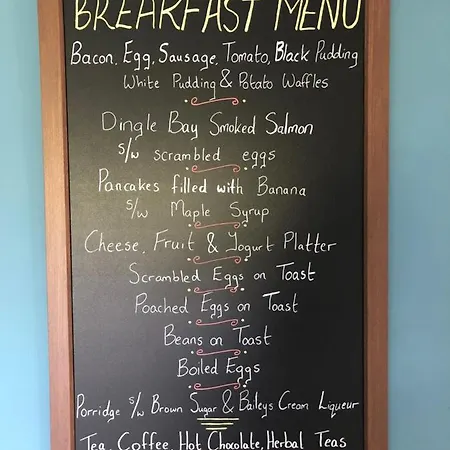 BREAKFAST MENU
Bacon, Egg, Sausage, Tomato, Black Pudding
White Pudding & Potato Waffles
Dingle Bay Smoked Salmon
s/w scrambled eggs
Pancakes filled with Banana
s/w Maple Syrup
Cheese, Fruit & Yogurt Platter
Scrambled Eggs on Toast
Poached Eggs on Toast
Beans on Toast
Boiled Eggs
Porridge s/w Brown Sugar & Baileys Cream Liqueur
Tea, Coffee, Hot Chocolate, Herbal Teas